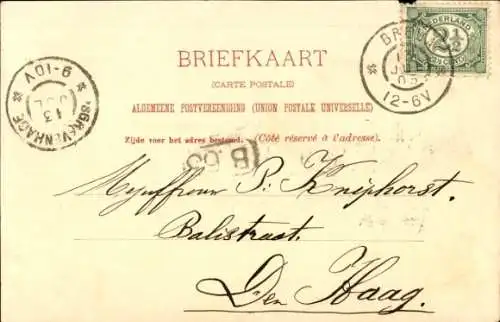 BRIEFKAART
(CARTE POSTALE)
ALGEMEENE POSTVEREENIGING (UNION POSTALE UNIVERSELLE)
Zijde voor het adres bestemd. (Côté réservé à l'adresse.)
NEDERLAND
2½
12-6V
'SGRAVENHAGE
13
JUL
9-10V
B.53
Mejuffrouw P. Kniphorst.
Balistraat.
Den Haag.